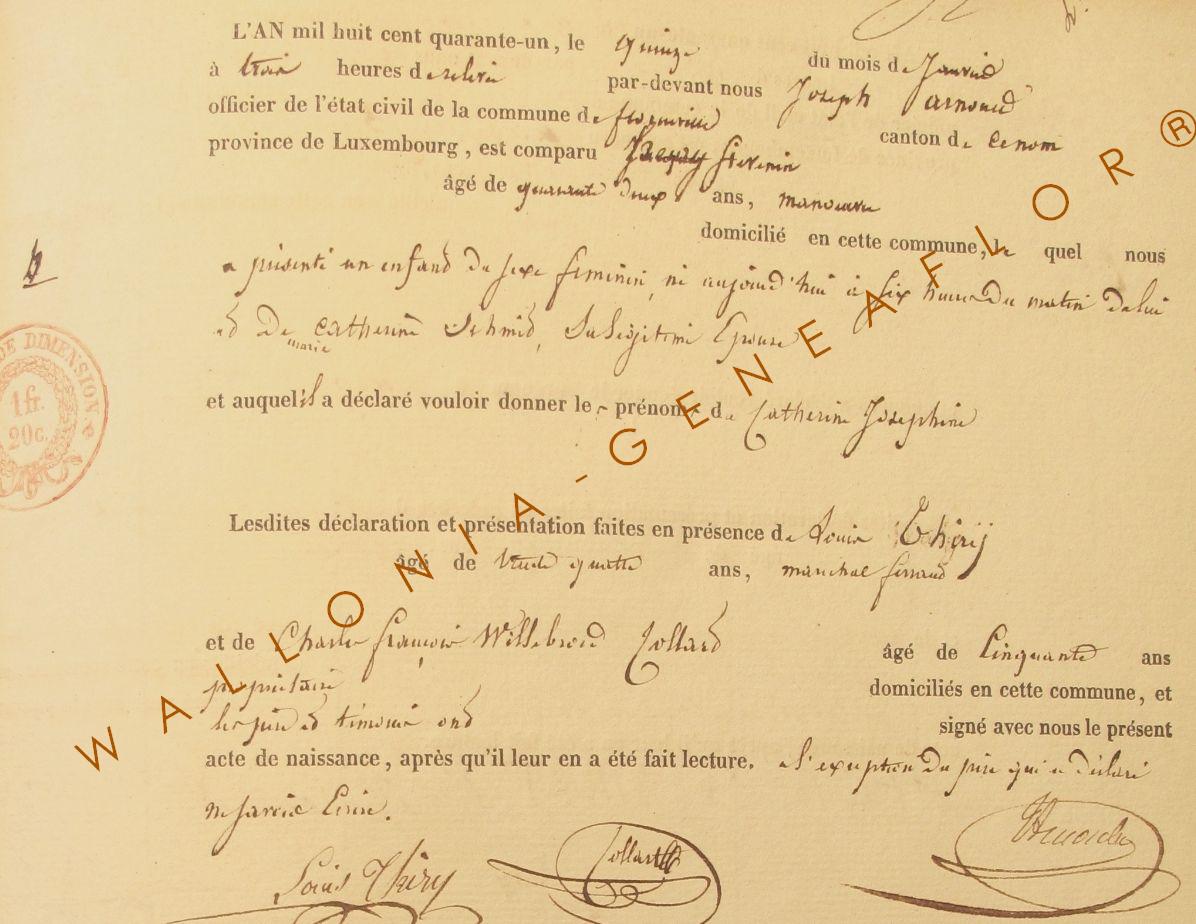 L'AN mil huit cent quarante-un, le quinze du mois de Janvier
à trois heures de relevée par-devant nous Joseph arnould
officier de l'état civil de la commune de florenville canton de
province de Luxembourg, est comparu Stevenin
âgé de quarante deux ans, manouvre
domicilié en cette commune, le quel nous
a présenté un enfant du sexe feminin, né aujourd'hui à six heures du matin de lui
et de Catherine Schmid, sa légitime Epouse
marie
et auquel il a déclaré vouloir donner les prénoms de Catherine Josephine
Lesdites déclaration et présentation faites en présence de Louis Thiry
âgé de trente quatre ans, marechal ferrand
et de Charles françois Willebrord Collard âgé de Cinquante ans
propriétaire domiciliés en cette commune, et
les père et témoins ont signé avec nous le présent
acte de naissance, après qu'il leur en a été fait lecture. à l'exception du père qui a déclaré
ne savoir Ecrire.
Louis Thiry Collard
DE DIMENSION
1 fr.
20c.
WALLONIA-GENEAFLOR®